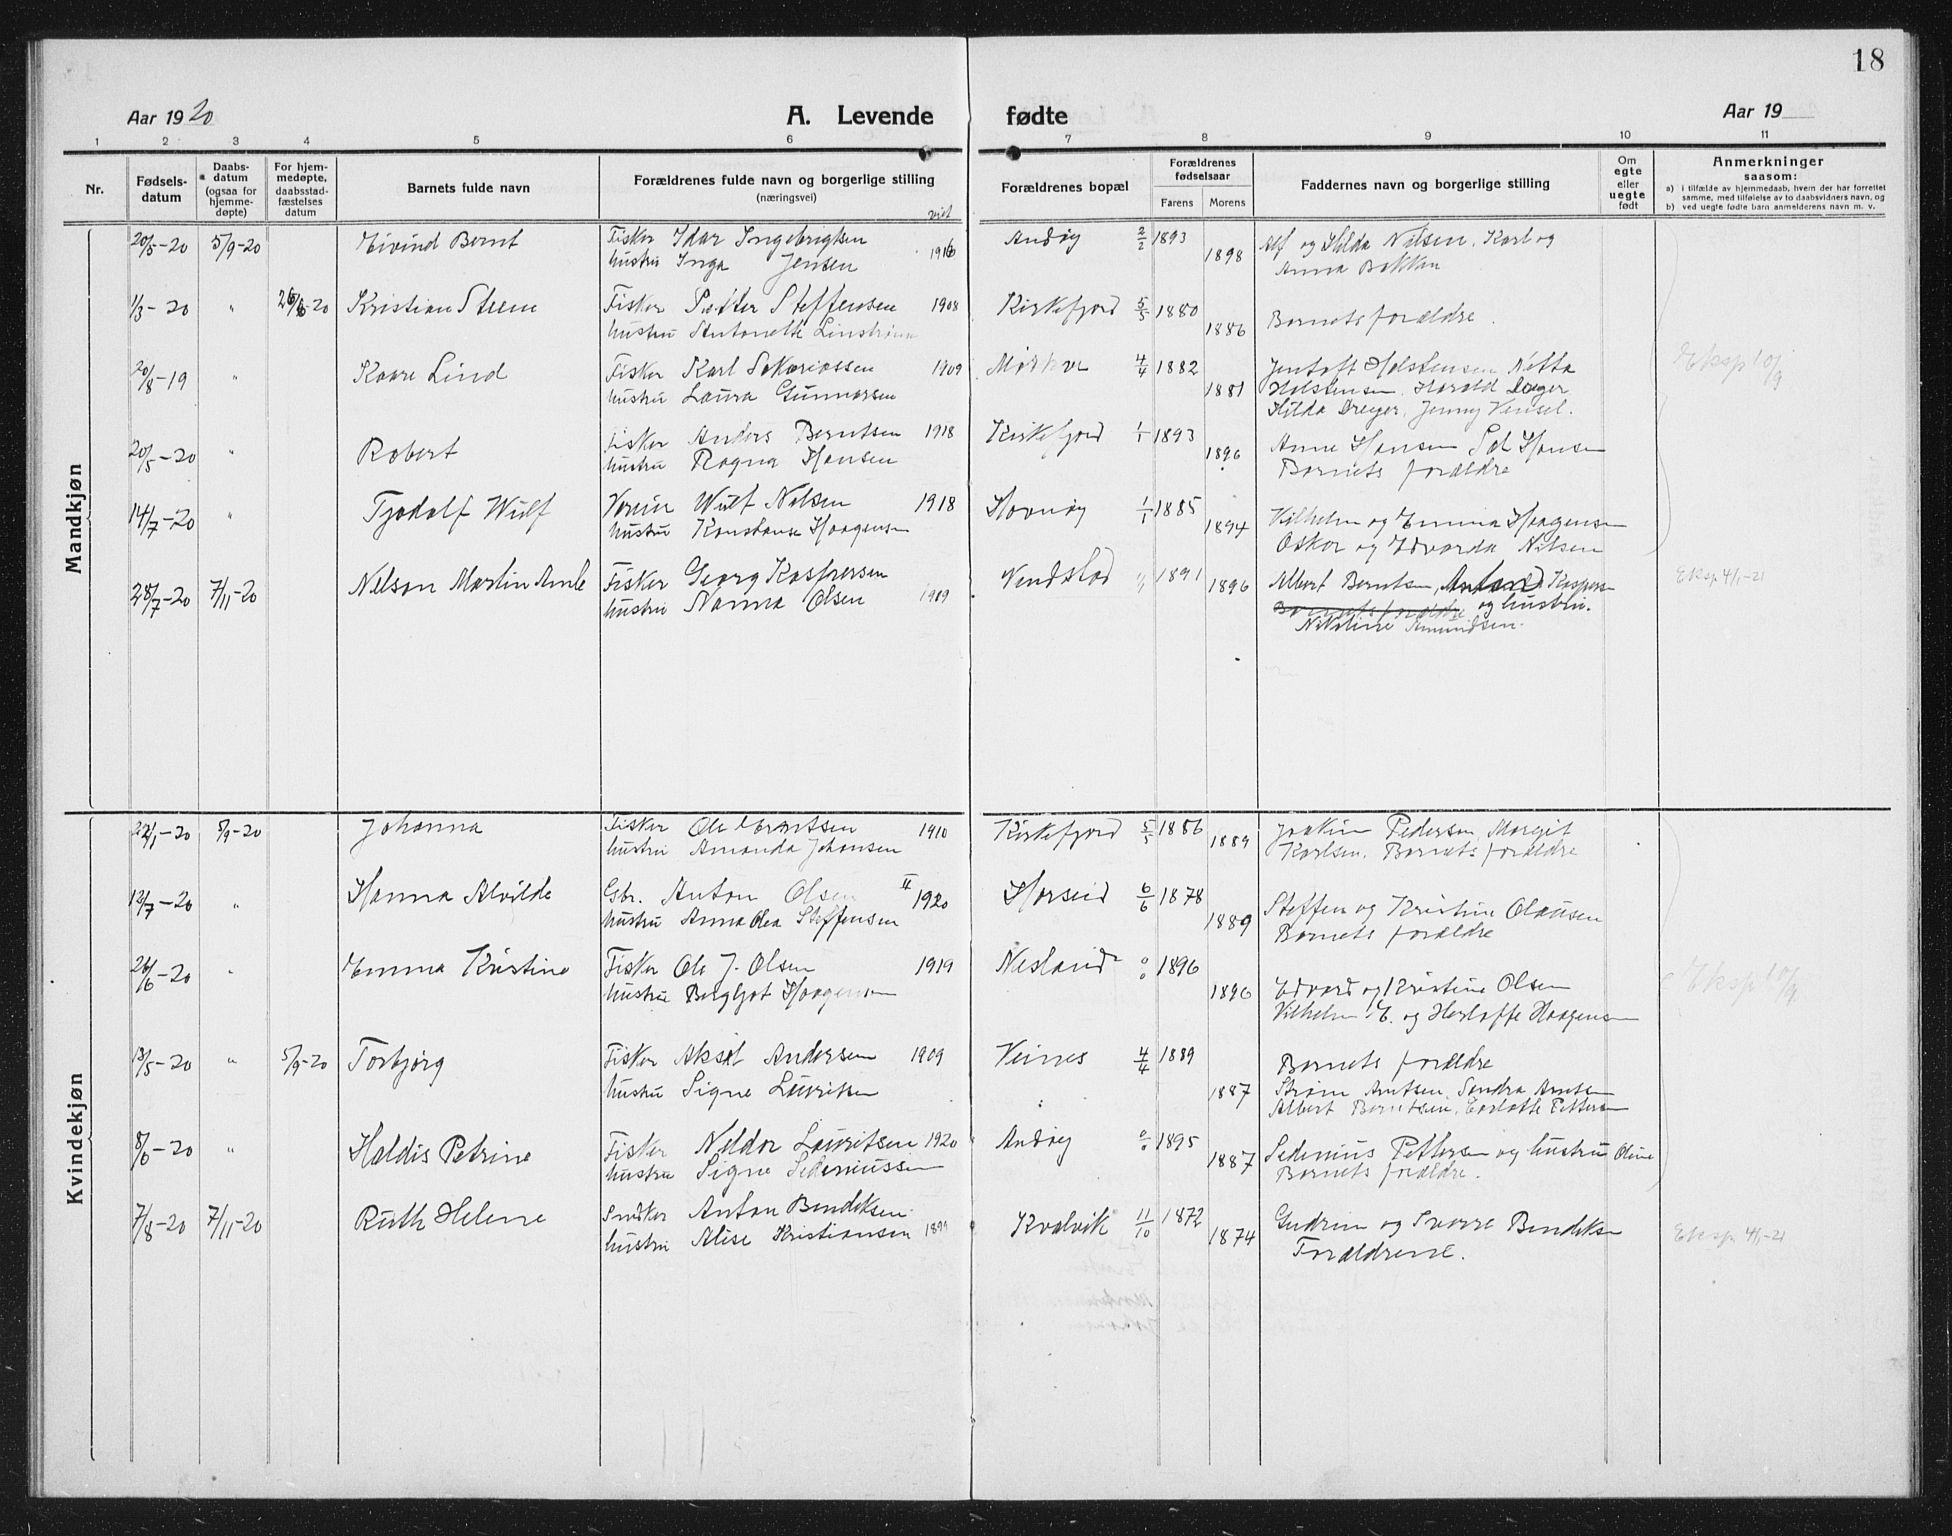 18
Aar 1920 A. Levende fødte Aar 19
1 2 3 4 5 6 7 8 9 10 11
Nr.
Fødsels-
datum
Daabs-
datum
(ogsaa for
hjemme-
døpte)
For hjem-
medøpte,
daabsstad-
fæstelses
datum
Barnets fulde navn
Forældrenes fulde navn og borgerlige stilling
(næringsvei)
viet
Forældrenes bopæl
Forældrenes
fødselsaar
Farens Morens
Faddernes navn og borgerlige stilling
Om
egte
eller
uegte
født
Anmerkninger
saasom:
a) i tilfælde av hjemmedaab, hvem der har forrettet
samme, med tilføielse av to daabsvidners navn, og
b) ved uegte fødte barn anmelderens navn m. v.
Mandkjøn
20/5-20 5/9-20 Eivind Bernt Fisker Idar Ingebrigtsen 1916 Andøy 2/2 1893 Alf og Hilda Nilsen, Karl og
hustru Inga Jensen 1898 Anna Bakken
1/3-20 " -20 Kristian Steene Fisker Peder Steffensen 1908 Kirkefjord 5/5 1880 Barnets forældre.
hustru Antonette Linstrøm 1886
20/8-19 " Kaare Lind Fisker Karl Sakariassen 1909 4/4 1882 Jentoft Holstensen, Netta
hustru Laura Gunnarsen 1881 Holstensen, Harald
Hilda Dreyer, Jenny
Eksp 10/9
20/5-20 " Robert Fisker Anders Berntsen 1918 Kirkefjord 1/1 1893 Anne Hansen Sol Hansen
hustru Ragna Hansen 1896 Barnets forældre
14/7-20 " Tjodolf Wulf Wulf Nilsen 1918 Havnøy 1/1 1885 Vilhelm og Emma Haagensen
hustru Konstanse Haagensen 1894 Oskar og Edvarda Nilsen
28/7-20 7/11-20 Nelson Martin Amle Fisker Georg Kaspersen Vendstad " 1891 Albert Berntsen, Anton Kaspersen
hustru Nanna Olsen 1919 1896 Barnets forældre og hustru.
Nikoline Amundsen.
Eksp 4/1-21
Kvindekjøn
22/1-20 5/9-20 Johanna Fisker Ole Berntsen 1910 Kirkefjord 5/5 1886 Joakim Pedersen, Margit
hustru Amanda Johansen 1889 Karlsen. Barnets forældre
12/7-20 " Hanna Alvilde Gbr. Anton Olsen II 1920 Horseid 6/6 1878 Steffen og Kristine Olausen
hustru Anna Olea Steffensen 1889 Barnets forældre
26/6-20 " Emma Kristine Fisker Ole J. Olsen 1919 Nesland 0/0 1896
hustru Bergljot Haagensen 1896 Edvard og Kristine Olsen
Vilhelm E. og Herloffe Haagensen
Eksp 10/9
13/5-20 " 5/9-20 Torbjørg Fisker Aksel Andersen 1909 Veines 4/4 1889 Barnets forældre
hustru Signe Lauritsen 1887 Strøm Arntsen, Sandra Arntsen
Albert Berntsen, Carlotte Pettersen
8/6-20 " Haldis Petrine Fisker Neldor Lauritsen 1920 Andøy 0/0 1895 Sedenius Pettersen og hustru Oline
hustru Signe Sedeniussen 1887 Barnets forældre.
7/8-20 7/11-20 Ruth Helene Anton Bendiksen Kvalvik 11/10 1872 Gudrun og Sverre Bendiksen
hustru Alise Kristiansen 1899 1874 Forældrene.
Eksp 4/1-21